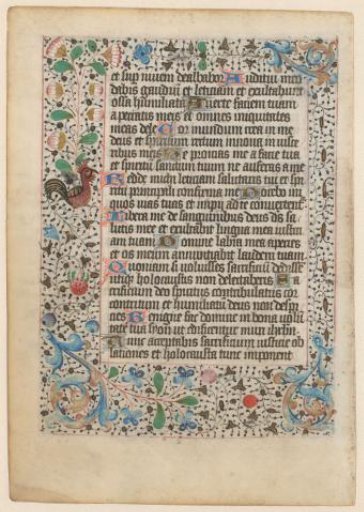 et sup nivem dealbabor Auditui meo
dabis gaudiū et leticiam et exultabunt
ossa humiliata Averte faciem tuam
a peccatis meis et omnes iniquitates
meas dele Cor mundum crea in me
deus et spiritum rectum innova in visce
ribus meis Ne proicias me a facie tua
et spiritū sanctum tuum ne auferas a me
Redde michi leticiam salutaris tui et spi
ritu principali confirma me Docebo in
quos vias tuas et impii ad te convertent
Libera me de sanguinibus deus deus sa
lutis mee et exultabit lingua mea iusticiam
am tuam Domine labia mea aperies
et os meum annunciabit laudem tuam
Quoniam si voluisses sacrificiū dedisse
utiqȝ holocaustis non delectaberis Sa
crificium deo spiritus contribulatus cor
contritum et humiliatū deus non despi
cies Benigne fac domine in bona volū
tate tua syon ut edificentur muri iherlm
Tunc acceptabis sacrificium iusticie ob
lationes et holocausta tunc imponent